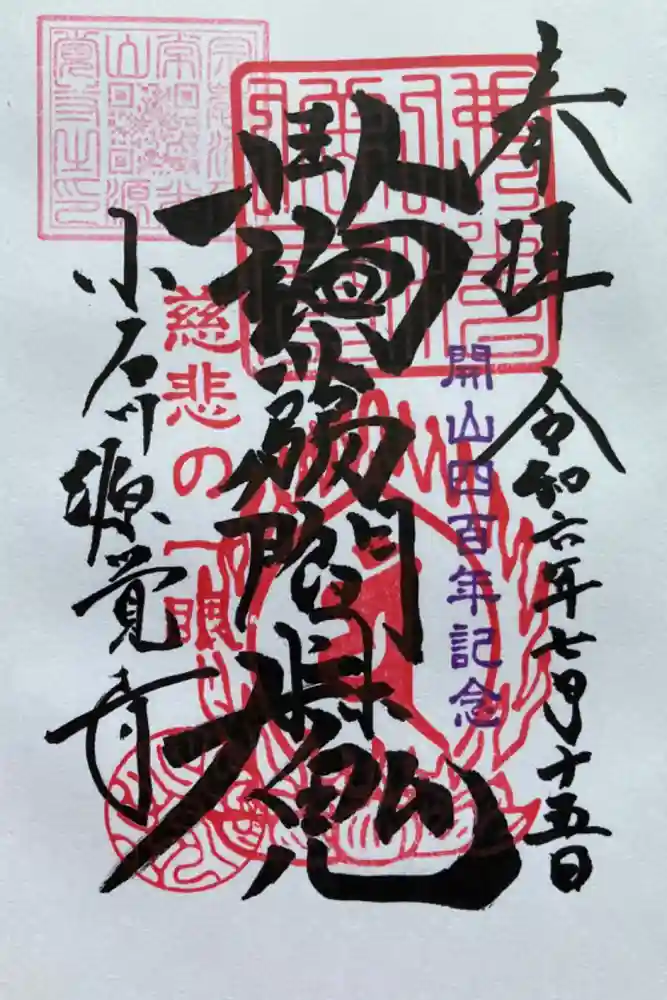 奉拝
令和六年七月十五日
開山四百年記念
蒟蒻閻魔
慈悲の一眼
小石川源覚寺